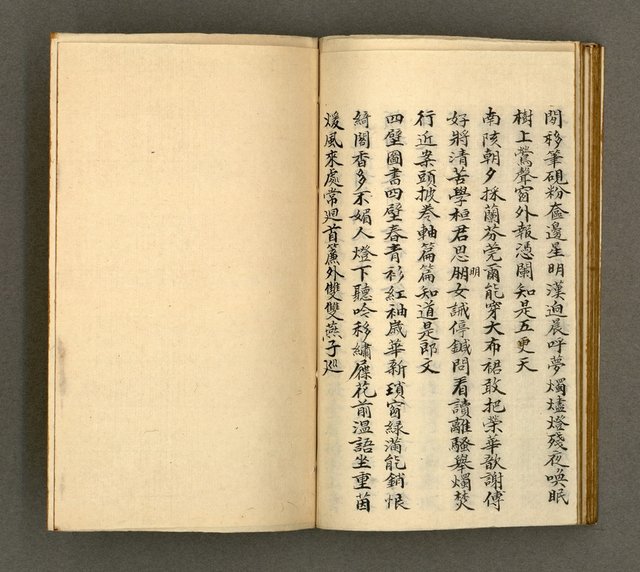 閒移筆硯粉奩邊星明漢迥晨呼夢燭燼燈殘夜喚眠
樹上鶯聲窗外報憑闌知是五更天
南陔朝夕採蘭芬莞爾能穿大布裙敢把榮華歆謝傅
好將清苦學桓君思朋女誡停鍼問看讀離騷舉燭焚
明
行近案頭披卷軸篇篇知道是郎文
四壁圖書四壁春青衫紅袖歲華新瑣窗綠滿能銷恨
綺閣香多不媚人燈下聽吟移繡屧花前溫語坐重茵
煖風來處常迴首簾外雙雙燕子迴